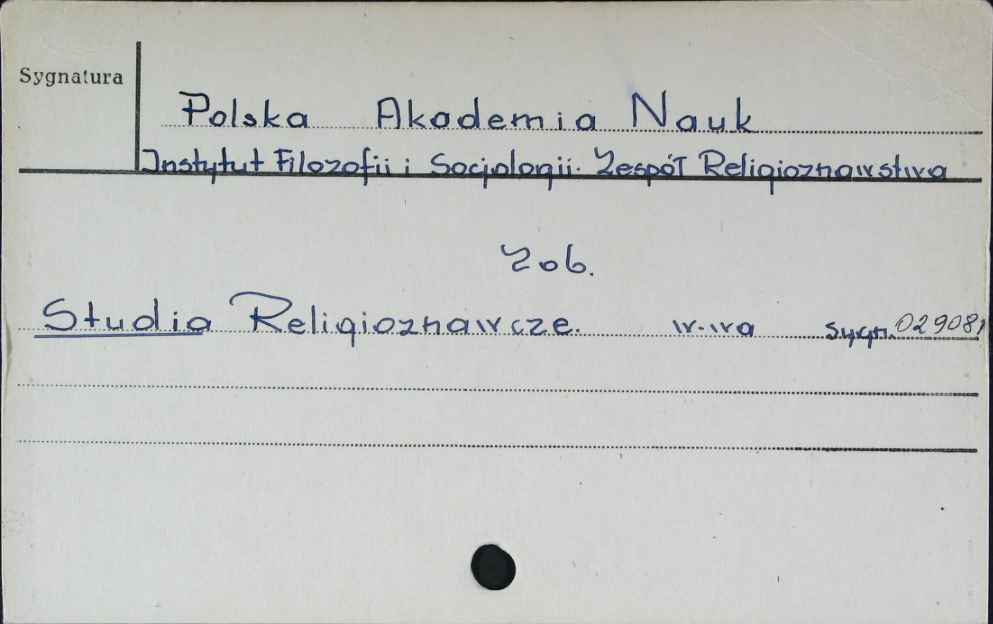 Sygnatura
Polska Akademia Nauk
Instytut Filozofii i Socjologii. Zespół Religioznawstwa
Zob.
Studia Religioznawcze. W-wa sygn. 029081